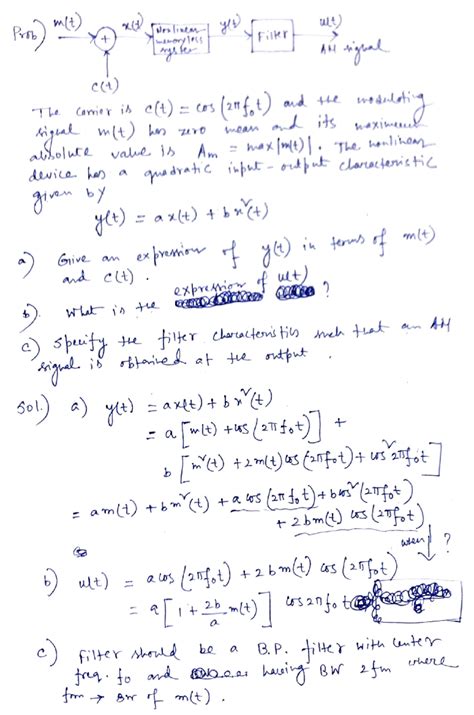 Prob) m(t) + x(t) Nonlinear memoryless system y(t) Filter u(t)
AM signal
c(t)
The carrier is c(t) = cos (2πf₀t) and the modulating
signal m(t) has zero mean and its maximum
absolute value is Am = max|m(t)|. The nonlinear
device has a quadratic input-output characteristic
given by
y(t) = ax(t) + bx²(t)
a) Give an expression of y(t) in terms of m(t)
and c(t).
b). What is the expression of u(t) ?
c) Specify the filter characteristics such that an AM
signal is obtained at the output.
Sol.) a) y(t) = ax(t) + bx²(t)
= a [m(t) + cos (2πf₀t)] +
b [m²(t) + 2m(t) cos (2πf₀t) + cos² 2πf₀t]
= am(t) + bm²(t) + a cos (2πf₀t) + b cos² (2πf₀t)
+ 2bm(t) cos (2πf₀t)
when ?
b) u(t) = a cos (2πf₀t) + 2bm(t) cos (2πf₀t)
= a [1 + 2b/a m(t)] cos 2πf₀t
c) Filter should be a B.P. filter with center
freq. f₀ and having BW 2fm where
fm → BW of m(t).